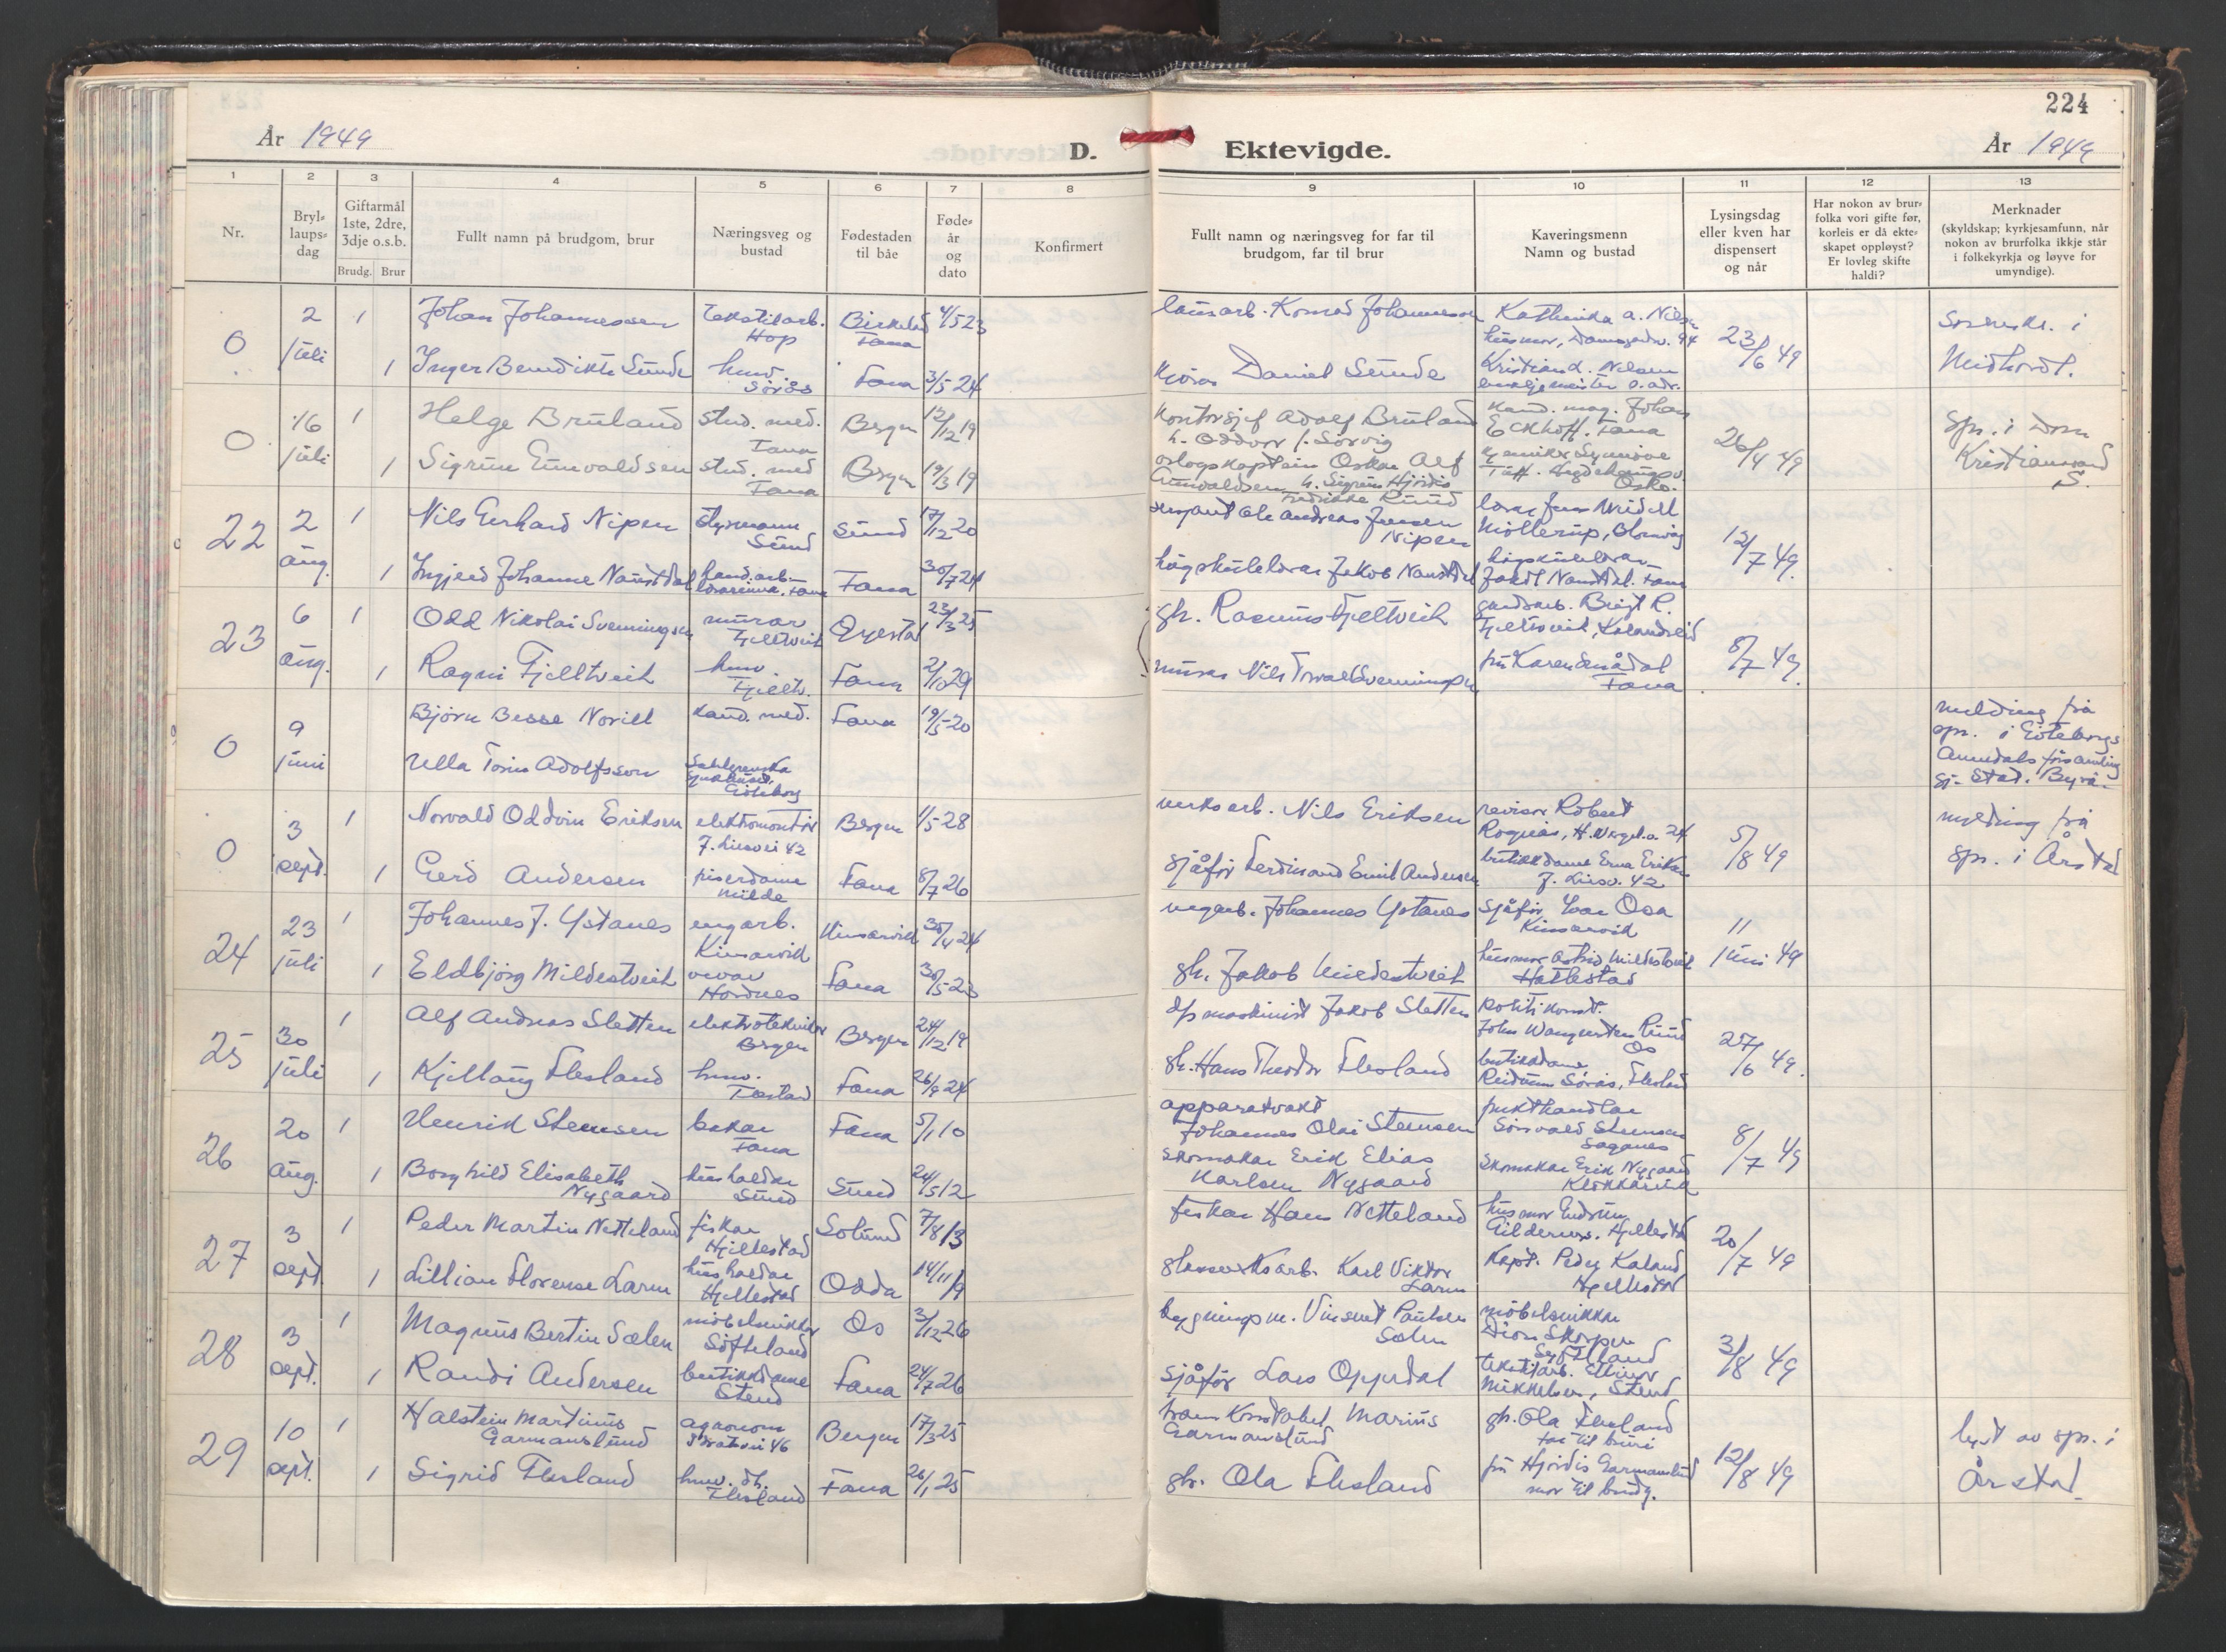 224
År 1949
D.
Ektevigde.
År 1949
1
2
3
4
5
6
7
8
9
10
11
12
13
Nr.
Bryl=
laups=
dag
Giftarmål
1ste, 2dre,
3dje o.s.b.
Brudg. Brur
Fullt namn på brudgom, brur
Næringsveg og
bustad
Fødestaden
til båe
Føde=
år
og
dato
Konfirmert
Fullt namn og næringsveg for far til
brudgom, far til brur
Kaveringsmenn
Namn og bustad
Lysingsdag
eller kven har
dispensert
og når
Har nokon av brur=
folka vori gifte før,
korleis er då ekte=
skapet oppløyst?
Er lovleg skifte
haldi?
Merknader
(skyldskap; kyrkjesamfunn, når
nokon av brurfolka ikkje står
i folkekyrkja og løyve for
umyndige).
0
2
juli
1
Johan Johannessen
Tekstilarb.
Hop
Birkeland
Fana
4/5 23
Konrad Johannessen
Kathinka A. Nilsen
husmor, Damsgardsv. 94
23/6 49
i
Midhordl.
1
Inger Benedikte Sunde
husv.
Sørås
Fana
3/5 24
Daniel Sunde
Kristian L. Nilsen
s. adr.
0
16
juli
1
Helge Bruland
stud. med.
Fana
Bergen
12/12 19
Kontorsjef Adolf Bruland
h. Oddvor f. Sørvig
kand. mag. Johan
Eckhoff. Fana
26/4 49
Spr. i Dom
Kristiansand
S.
1
Sigrun Einvoldsen
stud. med
Fana
Bergen
19/3 19
orlogskaptein Oskar Alf
Einvoldsen h. Sigrun Hjördis
Fredrikke Ruud
Oslo.
22
2
aug.
1
Nils Gerhard Nipen
styrmann
Sund
Sund
17/12 20
sersjant Ole Andreas Jensen
Nipen
Möllerup, Blomvåg
12/7 49.
1
Ingjerd Johanne Naustdal
hand.arb.
lærarinna. Fana
Fana
30/7 24
högskulelærar Jakob Naustdal
högskulelærar
Jakob Naustdal. Fana
23
6
aug.
1
Odd Nikolai Svenningsen
murar
Fjelltveit
Öyestad
23/3 25
gbr. Rasmus Fjeltveit
gardsarb. Birgit R.
Fjeltveit, Kalandseid
8/7 49.
1
Ragni Fjelltveit
husv.
Fjelltv.
Fana
2/10 29
murar Nils Torvald Svenningsen
fru Karen Smådal
Fana
0
9
juni
Björn Besse Norill
Kand. med.
Fana
19/5 20
melding frå
spr. i Göteborgs
Annedals församling
Ulla Torin Adolfsson
Sahlgrenska
Sjukhuset,
Göteborg
0
3
sept.
1
Norvald Oddvin Eriksen
elektromontör
J. Liesvei 42
Bergen
1/5 28
verksarb. Nils Eriksen
revisor Robert
Rognås, H. Wergel.g. 24
5/8 49
melding frå
spr. i Årstad
1
Gerd Andersen
friserdame
Milde
Fana
8/7 26
sjåför Ferdinand Emil Andersen
butikkdame Erna Eriksen
J. Liesv. 42
24
23
juli
1
Johannes J. Ystanes
veg arb.
Kinsarvik
Kinsarvik
30/4 24
vegarb. Johannes Ystanes
sjåför Ivar Osa
Kinsarvik
11
juni 49
1
Eldbjörg Mildestveit
vevar
Hordnes
Fana
30/5 23
gbr. Jakob Mildestveit
husmor Astrid Mildestveit
Hatlestad
25
30
juli
1
Alf Andreas Sletten
elektrotekniker
Bergen
Bergen
24/12 19
maskinist Jakob Sletten
Politikonst.
John Wangensten Ruud
Os
25/6 49.
1
Kjellaug Flesland
husv.
Fana
26/9 24
gbr. Hans Theodor Flesland
butikkdame
Reidunn Sörås, Flesland
26
20
aug.
1
Henrik Steensen
bakar
Fana
Fana
5/1 10
apparatvakt
Johannes Olai Steensen
frukthandlar
Steensen
8/7 49
1
Borghild Elisabeth
Nygaard
hushaldar
Sund
Sund
24/5 12
skomakar Erik Elias
Karlsen Nygaard
skomakar Erik Nygaard
Klokkarvik
27
3
sept.
1
Peder Martin Netteland
fiskar
Hjellestad
Solund
7/8 13
fiskar Hans Netteland
husmor Gudrun
Gildernes. Hjellestad
20/7 49
1
Lillian Florense Larm
hushaldar
Hjellestad
Odda
14/11 19
Karl Viktor
Larm
Kapt. Peder Kaland
Hjellestad
28
3
sept.
1
Magnus Bertin Sælen
möbelsnikkar
Söfteland
Os
3/12 26
bygningsm. Vinsent Paulsen
Sælen
möbelsnikkar
Skorpen
Syfteland
3/8 49
1
Randi Andersen
butikkdame
Stend
Fana
24/7 26
sjåför Lars Oppedal
tekstilarb. Ellinor
Mikkelsen, Stend
29
10
sept.
1
Halstein Martinus
Garmanslund
agronom
46
Bergen
17/3 25
Konstabel Marius
Garmanslund
gbr. Ola Flesland
far til bruri
12/8 49
lyst av spr. i
Årstad.
1
Sigrid Flesland
husv. dh.
Flesland
Fana
26/1 25
gbr. Ola Flesland
fru Hjördis Garmanslund
mor til brudg.